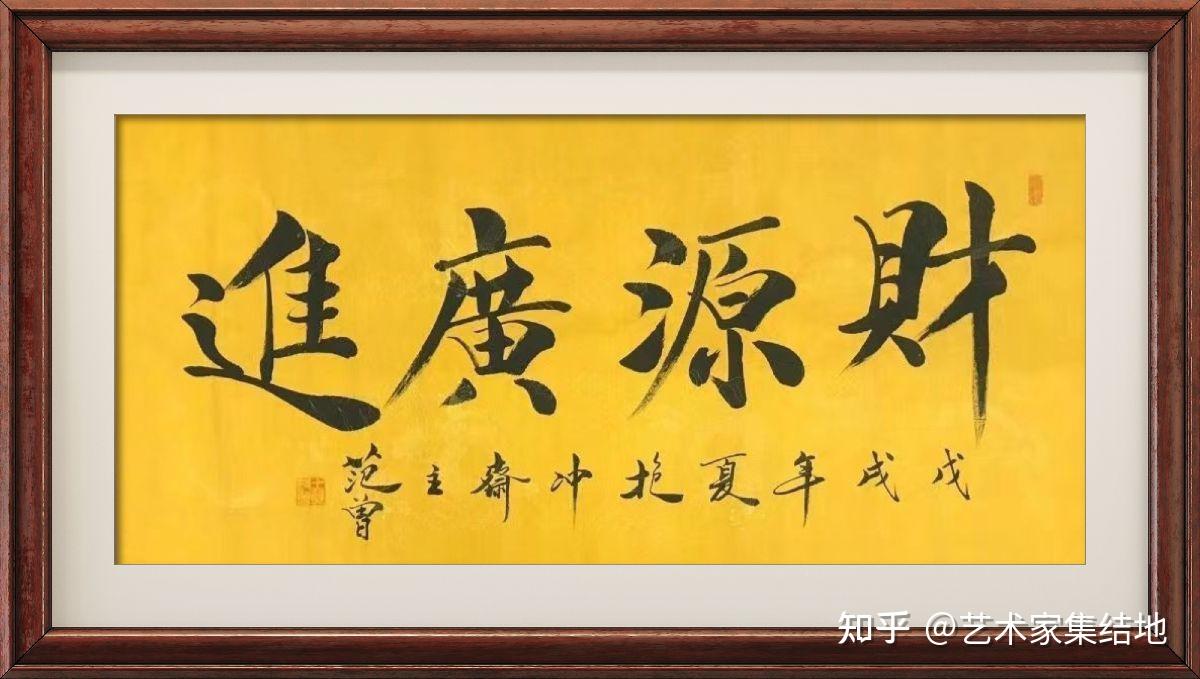 財源廣進
戊戌年夏抱冲齋主
范曾
知乎 @艺术家集结地